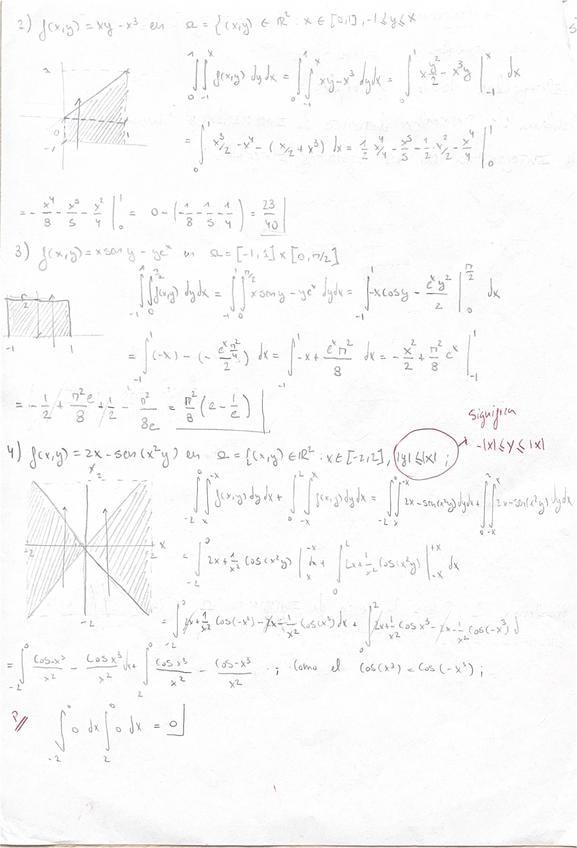 2) f(x,y) = xy - x³ en Ω = {(x,y) ∈ ℝ² : x ∈ [0,1], -1 ≤ y ≤ x
∫₀¹∫₋₁ˣ f(x,y) dy dx = ∫₀¹∫₋₁ˣ xy - x³ dy dx = ∫₀¹ x y²/2 - x³y |₋₁ˣ dx
= ∫₀¹ x³/2 - x⁴ - (x/2 + x³) dx = 1/2 x⁴/4 - x⁵/5 - 1/2 x²/2 - x⁴/4 |₀¹
= - x⁴/8 - x⁵/5 - x²/4 |₀¹ = 0 - (-1/8 - 1/5 - 1/4) = 23/40
3) f(x,y) = x sen y - yeˣ en Ω = [-1,1] x [0, π/2]
-1 1
∫₋₁¹∫₀ f(x,y) dy dx = ∫₋₁¹∫₀^(π/2) x sen y - yeˣ dy dx = ∫₋₁¹ -x cos y - eˣy²/2 |₀^(π/2) dx
= ∫₋₁¹ (-x) - (- eˣ π²/4 / 2) dx = ∫₋₁¹ -x + eˣπ²/8 dx = - x²/2 + π²/8 eˣ |₋₁¹
= - 1/2 + π²e/8 + 1/2 - π²/8e = π²/8 (e - 1/e)
Significa
-|x| ≤ y ≤ |x|
4) f(x,y) = 2x - sen(x²y) en Ω = {(x,y) ∈ ℝ² : x ∈ [-2,2], |y| ≤ |x| ;
-2 2 x
-2
∫₋₂⁰∫ₓ⁻ˣ f(x,y) dy dx + ∫₀²∫₋ₓˣ f(x,y) dy dx = ∫₋₂⁰∫ₓ⁻ˣ 2x - sen(x²y) dy dx + ∫₀²∫₋ₓˣ 2x - sen(x²y) dy dx
= ∫₋₂⁰ 2x + 1/x² cos(x²y) |ₓ⁻ˣ dx + ∫₀² 2x + 1/x² cos(x²y) |₋ₓ⁺ˣ dx
= ∫₋₂⁰ 2x + 1/x² cos(-x³) - 2x - 1/x² cos(x³) dx + ∫₀² 2x + 1/x² cos x³ - 2x - 1/x² cos(-x³) d
= ∫₋₂⁰ cos-x³/x² - cos x³/x² dx + ∫₂⁰ cos x³/x² - cos-x³/x² ; como el cos(x³) = cos(-x³) ;
∫₋₂⁰ 0 dx ∫₂⁰ 0 dx = 0